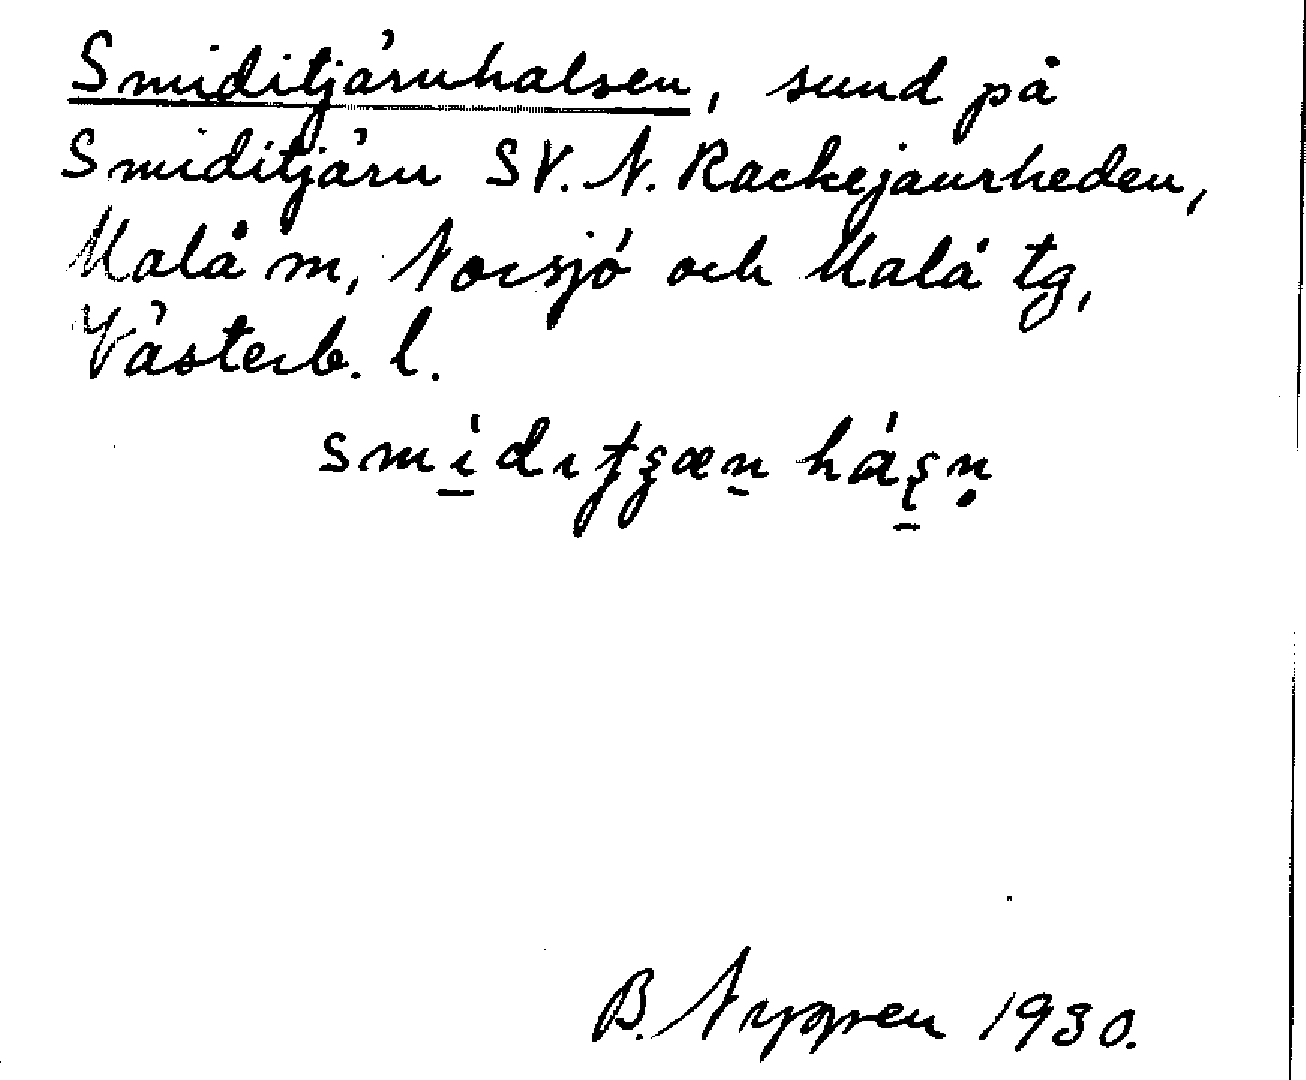 Smiditjärnhalsen, sund på
Smiditjärn SV. N. Rackejaurheden,
Malå m, Norsjö och Malå tg,
Västerb. l.
B. Nygren 1930.